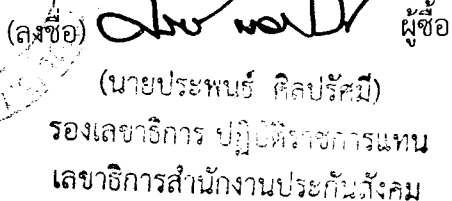 (ลงชื่อ) ผู้ซื้อ
(นายประพนธ์ ศิลปรัศมี)
รองเลขาธิการ ปฏิบัติราชการแทน
เลขาธิการสำนักงานประกันสังคม